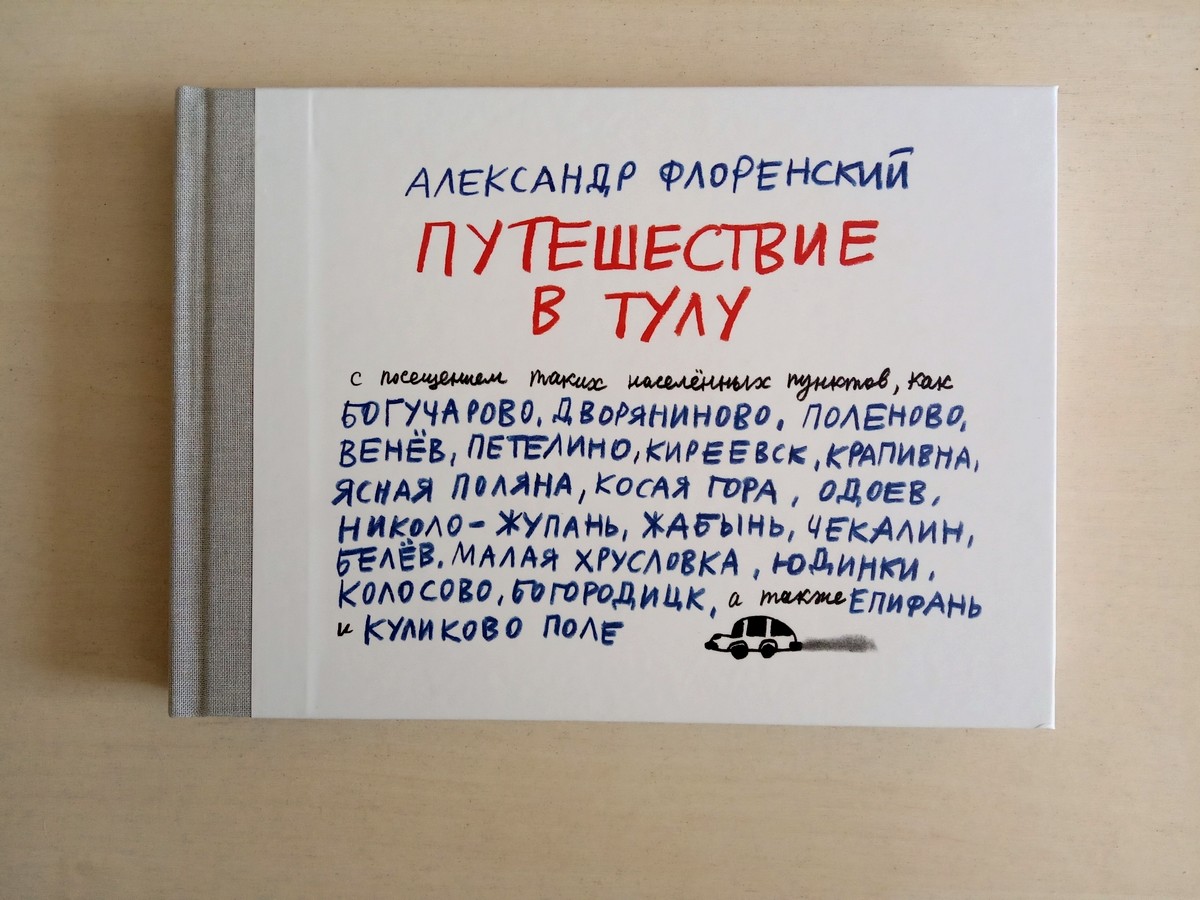 АЛЕКСАНДР ФЛОРЕНСКИЙ
ПУТЕШЕСТВИЕ
В ТУЛУ
с посещением таких населённых пунктов, как
БОГУЧАРОВО, ДВОРЯНИНОВО, ПОЛЕНОВО,
ВЕНЁВ, ПЕТЕЛИНО, КИРЕЕВСК, КРАПИВНА,
ЯСНАЯ ПОЛЯНА, КОСАЯ ГОРА, ОДОЕВ,
НИКОЛО-ЖУПАНЬ, ЖАБЫНЬ, ЧЕКАЛИН,
БЕЛЁВ, МАЛАЯ ХРУСЛОВКА, ЮДИНКИ,
КОЛОСОВО, БОГОРОДИЦК, а также ЕПИФАНЬ
и КУЛИКОВО ПОЛЕ